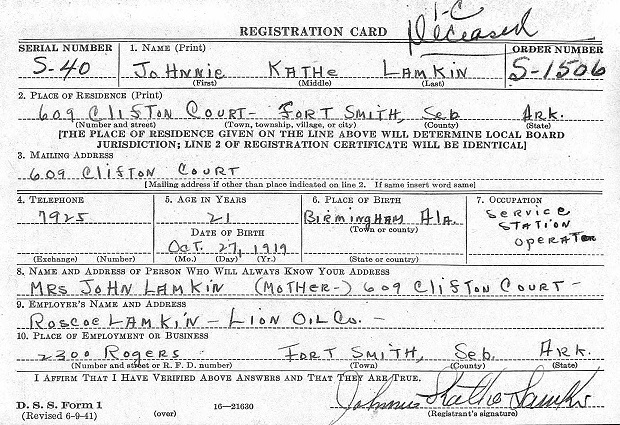 1-C
Deceased
REGISTRATION CARD
SERIAL NUMBER 1. NAME (Print) ORDER NUMBER
S-40 JOHNNIE KATHE LAMKIN S-1506
(First) (Middle) (Last)
2. PLACE OF RESIDENCE (Print)
609 CLIFTON COURT- FORT SMITH, Seb ARK.
(Number and street) (Town, township, village, or city) (County) (State)
[THE PLACE OF RESIDENCE GIVEN ON THE LINE ABOVE WILL DETERMINE LOCAL BOARD
JURISDICTION; LINE 2 OF REGISTRATION CERTIFICATE WILL BE IDENTICAL]
3. MAILING ADDRESS
609 CLIFTON COURT
[Mailing address if other than place indicated on line 2. If same insert word same]
4. TELEPHONE 5. AGE IN YEARS 6. PLACE OF BIRTH 7. OCCUPATION
7925 21 BIRMINGHAM Ala. SERVICE
(Town or county) STATION
DATE OF BIRTH OPERATOR
OCT. 27, 1919
(Exchange) (Number) (Mo.) (Day) (Yr.) (State or country)
8. NAME AND ADDRESS OF PERSON WHO WILL ALWAYS KNOW YOUR ADDRESS
MRS JOHN LAMKIN (MOTHER-) 609 CLIFTON COURT-
9. EMPLOYER'S NAME AND ADDRESS
ROSCOE LAMKIN - LION OIL CO. -
10. PLACE OF EMPLOYMENT OR BUSINESS
2300 ROGERS FORT SMITH, Seb. ARK.
(Number and street or R. F. D. number) (Town) (County) (State)
I AFFIRM THAT I HAVE VERIFIED ABOVE ANSWERS AND THAT THEY ARE TRUE.
D. S. S. Form 1 16—21630 Johnnie Kathe Lamkin
(Revised 6-9-41) (over) (Registrant's signature)